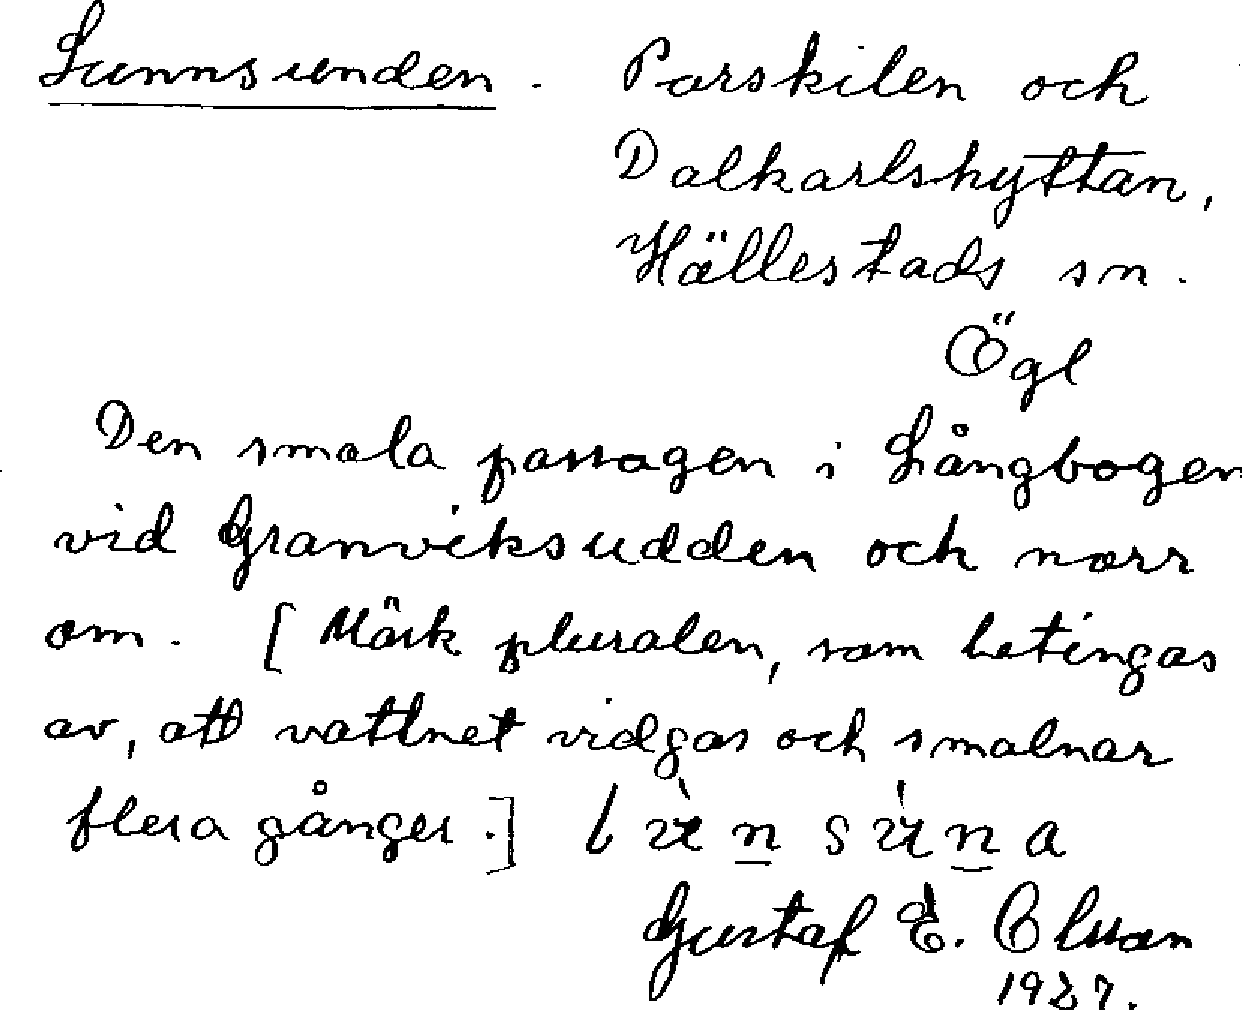 Lunnsunden. Porskilen och
Dalkarlshyttan,
Hällestads sn.
Ögl
Den smala passagen i Långbogen
vid Granviksudden och norr
om. [Märk pluralen, som betingas
av, att vattnet vidgas och smalnar
flera gånger.]
Gustaf E. Olsson
1927.